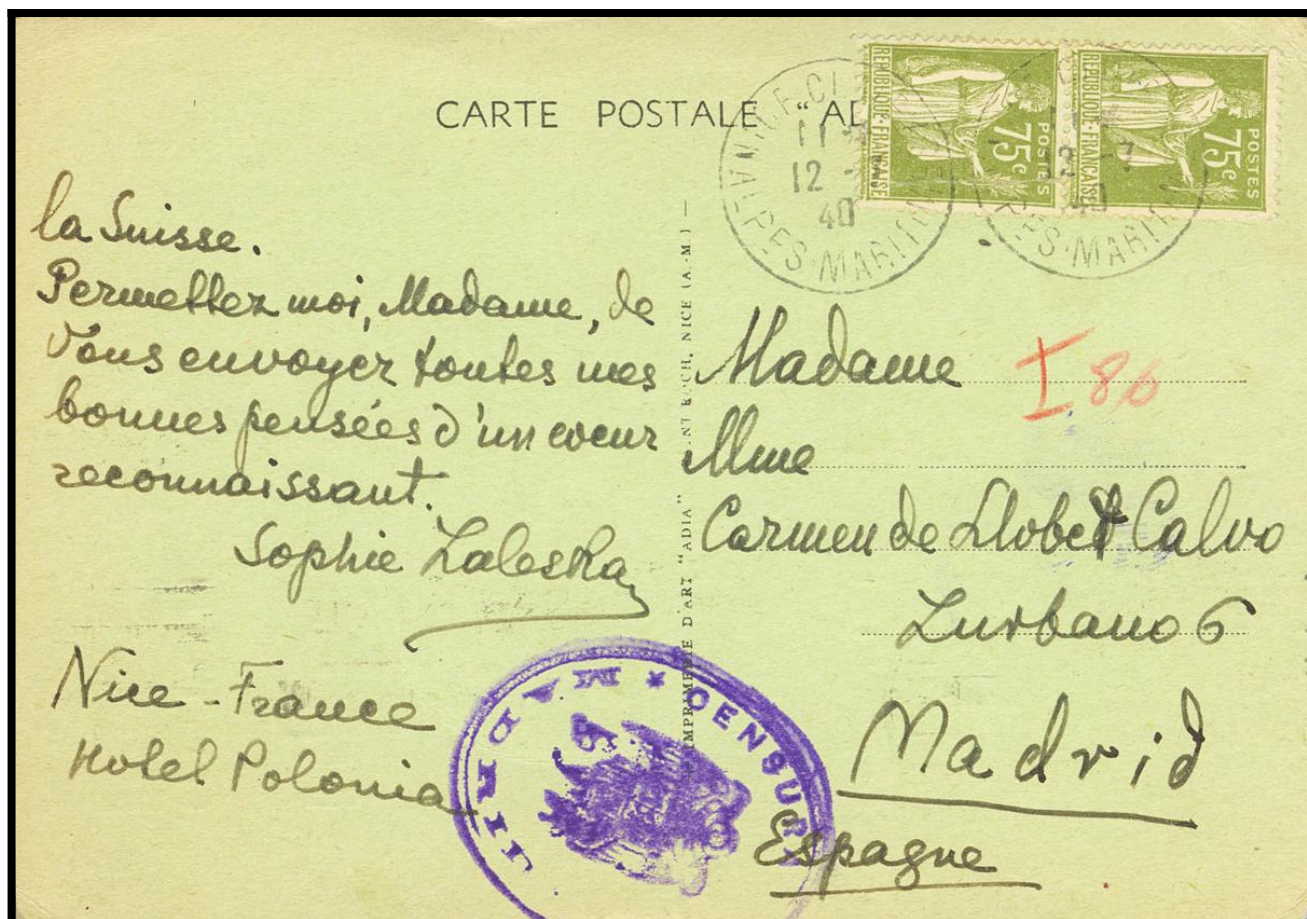 CARTE POSTALE "AD
REPUBLIQUE·FRANÇAISE
POSTES
75c
REPUBLIQUE·FRANÇAISE
POSTES
75c
12
40
ALPES-MARITIMES
la Suisse.
Permettez moi, Madame, de
Vous envoyer toutes mes
bonnes pensées d'un coeur
reconnaissant.
Sophie Zaleska
Nice - France
Hotel Polonia
IMPRIMERIE D'ART "ADIA"
NICE (A.-M.) —
Madame
I 86
Mme
Carmen de Llobet Calvo
Zurbano 6
Madrid
Espagne
CENSURA * MADRID